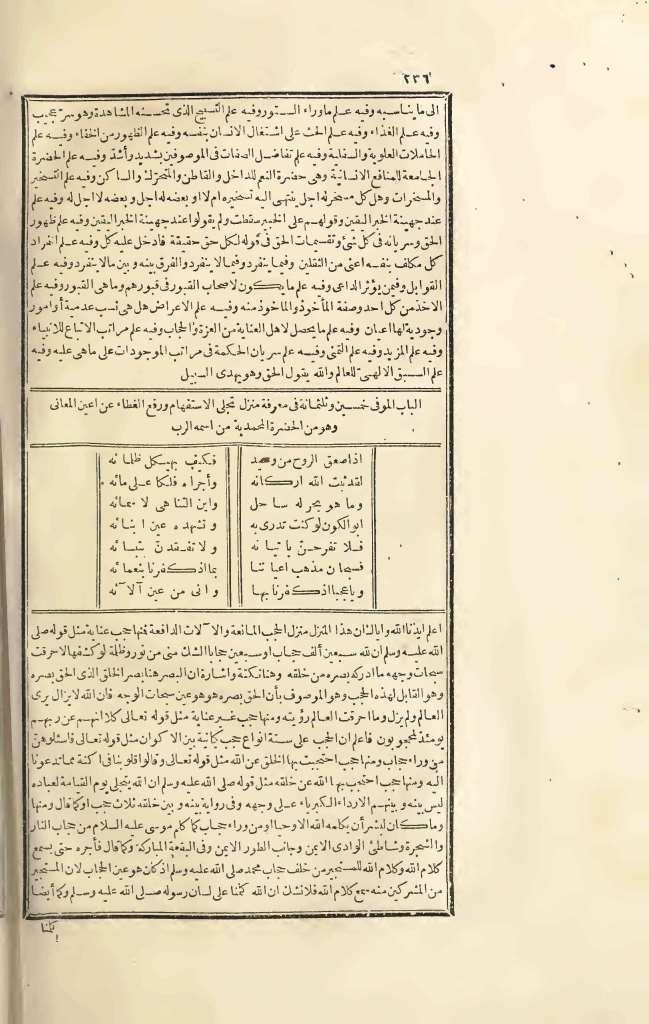 ٢٣٦
الى ما يناسبه وفيه علم ماوراء الستور وفيه علم التسبيح الذى تحسنه المشاهدة وهو سر عجيب
وفيه علم الغذاء وفيه علم الحث على اشتغال الانسان بنفسه وفيه علم الظهور من الخفاء وفيه علم
الحاملات العلوية والسفلية وفيه علم تفاضل الصفات فى الموصوفين بشديد وأشد وفيه علم الحضرة
الجامعة للمنافع الانسانية وهى حضرة النعم للداخل والقاطن والمتحرك والساكن وفيه علم التسخير
والمسخرات وهل كل مسخر له اجل ينتهى اليه تسخيره ام لا او بعضه له اجل وبعضه لا اجل له وفيه علم
عند جهينة الخبر اليقين وقولهم على الخبير سقطت ولم يقولوا عند جهينة الخبر اليقين وفيه علم ظهور
الحق وسريانه فى كل شئ وتقسيمات الحق فى قوله لكل حق حقيقة فادخل عليه كل وفيه علم انفراد
كل مكلف بنفسه اعنى من الثقلين وفيما ينفرد وفيما لا ينفرد والفرق بينه وبين ما لا ينفرد وفيه علم
القوابل وفيمن يؤثر الداعى وفيه علم ما يكون لاصحاب القبور فى قبورهم وما هى القبور وفيه علم
الاخذ من كل احد وصفة المأخوذ والماخوذ منه وفيه علم الاعراض هل هى نسب عدمية أوامور
وجودية لها اعيان وفيه علم ما يحصل لاهل العناية من العزة والحجاب وفيه علم مراتب الاتباع للانبياء
وفيه علم المزيد وفيه علم التمنى وفيه علم سريان الحكمة فى مراتب الموجودات على ماهى عليه وفيه
علم السبق الالهى للعالم والله يقول الحق وهو يهدى السبيل
الباب الموفى خمسين وثلثمائة فى معرفة منزل تجلى الاستفهام ورفع الغطاء عن اعين المعانى
وهو من الحضرة المحمدية من اسمه الرب
اذا صعق الروح من وحيه فكيف بهيكل ظلمائه
لقد ثبت الله اركانه وأجراه فلكا على مائه
وما هو بحر له ساحل واين التناهى لاسمائه
ابو الكون لو كنت تدرى به وتشهده عين ابنائه
فلا تفرحن باتيانه ولا تفقدن بتيائه
فسبحان مذهب اعياننا بما اذ كفرنا بنعمائه
ويا عجبا اذ كفرنا بها وانى من عين آلائه
اعلم ايدنا الله واياك ان هذا المنزل منزل الحجب المانعة والآلات الدافعة فمنها حجب عناية مثل قوله صلى
الله عليه وسلم ان لله سبعين ألف حجاب او سبعين حجابا الشك منى من نور وظلمة لو كشفها لاحرقت
سبحات وجهه ما ادركه بصره من خلقه وهنا نكتة واشارة ان البصر هنا بصر الخلق الذى الحق بصره
وهو القابل لهذه الحجب وهو الموصوف بأن الحق بصره هو هو عين سبحات الوجه فان الله لا يزال يرى
العالم ولم يزل وما احرقت العالم رؤيته ومنها حجب غير عناية مثل قوله تعالى كلا انهم عن ربهم
يومئذ لمحجوبون فاعلم ان الحجب على ستة انواع حجب كيانية بين الاكوان مثل قوله تعالى فاسئلوهن
من وراء حجاب ومنها حجب احتجبت بها الخلق عن الله مثل قوله تعالى وقالوا قلوبنا فى اكنة مما تدعونا
اليه ومنها حجب احتجب بها الله عن خلقه مثل قوله صلى الله عليه وسلم ان الله يتجلى يوم القيامة لعباده
ليس بينه وبينهم الارداء الكبرياء على وجهه وفى رواية بينه وبين خلقه ثلاث حجب اوكما قال ومنها
وما كان لبشر أن يكلمه الله الا وحيا او من وراء حجاب كما كلم موسى عليه السلام من حجاب النار
والشجرة وشاطئ الوادى الايمن وجانب الطور الايمن وفى البقعة المباركة وكما قال فأجره حتى يسمع
كلام الله وكلام الله للمستجير من خلف حجاب محمد صلى الله عليه وسلم اذ كان هو عين الحجاب لان المستجير
من المشركين منه سمع كلام الله فلا نشك ان الله كلمنا على لسان رسوله صلى الله عليه وسلم وكما أيضا
كلمنا